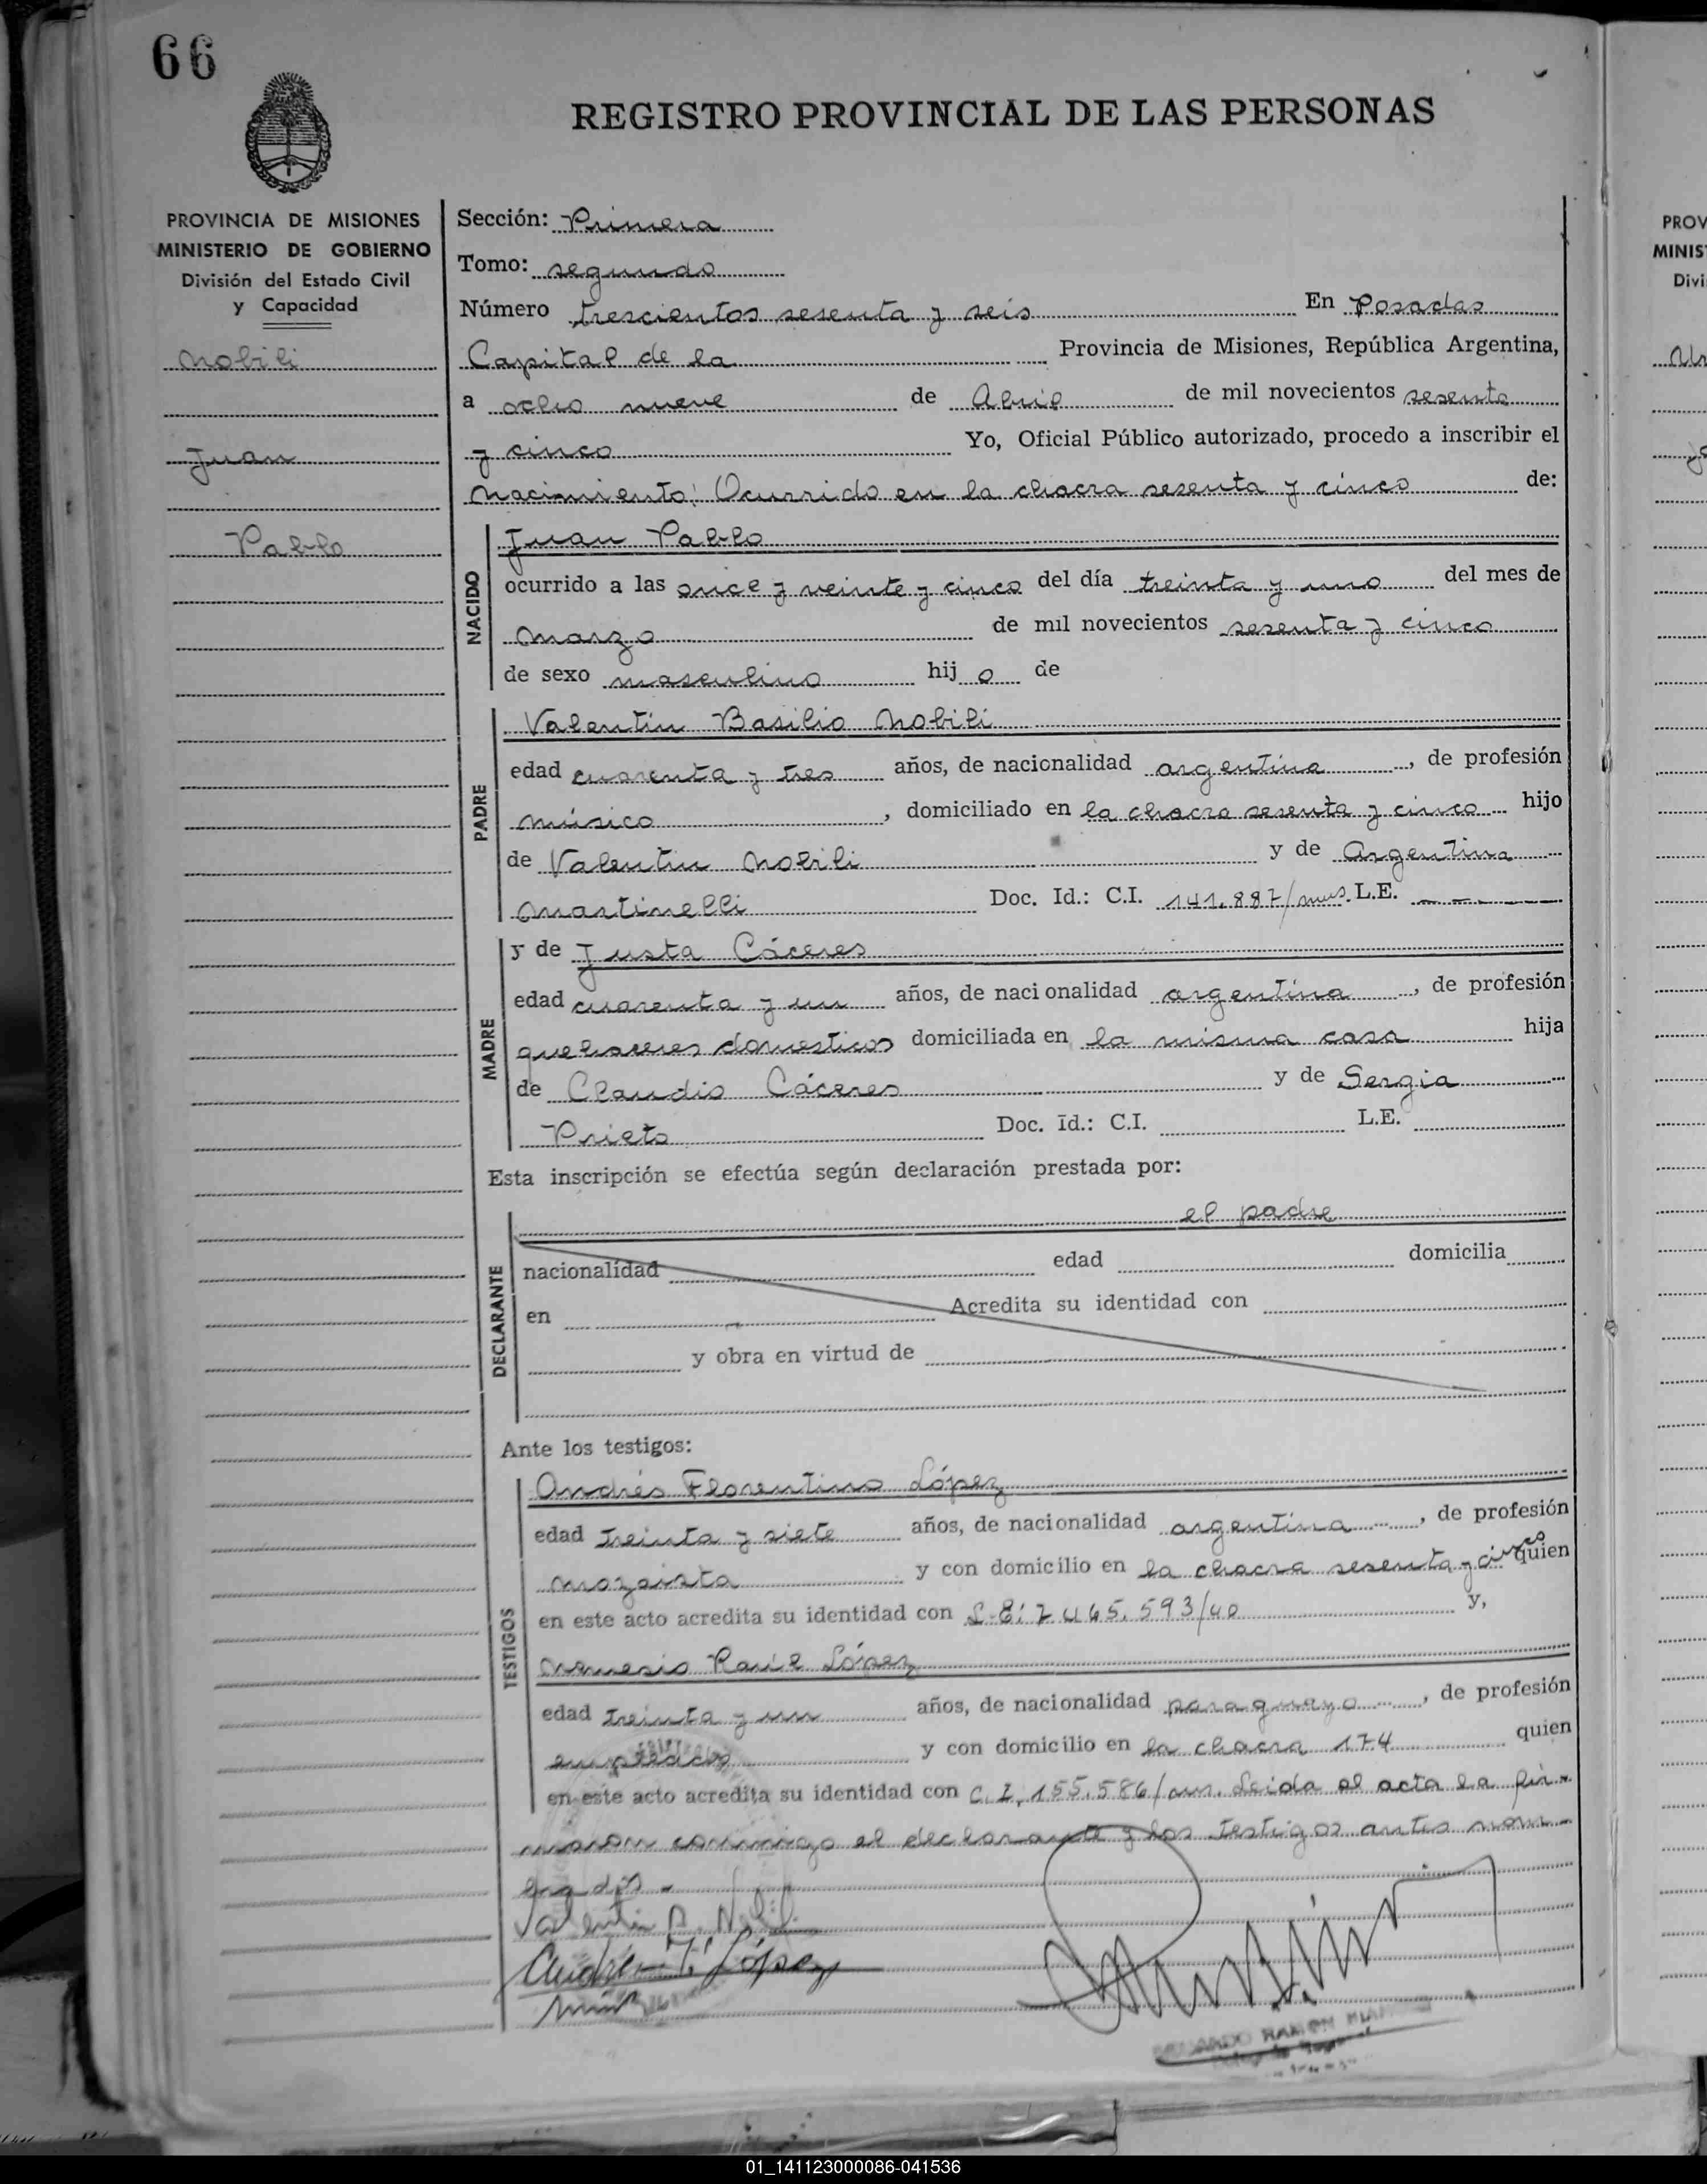 66
REGISTRO PROVINCIAL DE LAS PERSONAS
PROVINCIA DE MISIONES
MINISTERIO DE GOBIERNO
División del Estado Civil
y Capacidad
Nobili
Juan
Pablo
Sección: Primera
Tomo: segundo
Número trescientos sesenta y seis En Posadas
Capital de la Provincia de Misiones, República Argentina,
a ocho nueve de Abril de mil novecientos sesenta
y cinco Yo, Oficial Público autorizado, procedo a inscribir el
Nacimiento: Ocurrido en la chacra sesenta y cinco de:
NACIDO
Juan Pablo
ocurrido a las once y veinte y cinco del día treinta y uno del mes de
Marzo de mil novecientos sesenta y cinco
de sexo masculino hij o de
PADRE
Valentín Basilio Nobili
edad cuarenta y tres años, de nacionalidad argentina, de profesión
músico, domiciliado en la chacra sesenta y cinco hijo
de Valentín Nobili y de Argentina
Martinelli Doc. Id.: C.I. 141.887/mns. L.E. — — —
MADRE
y de Justa Cáceres
edad cuarenta y un años, de nacionalidad argentina, de profesión
quehaceres domesticos domiciliada en la misma casa hija
de Claudio Cáceres y de Sergia
Prieto Doc. Id.: C.I. L.E.
Esta inscripción se efectúa según declaración prestada por:
DECLARANTE
el padre
nacionalidad edad domicilia
en Acredita su identidad con
y obra en virtud de
Ante los testigos:
TESTIGOS
Andrés Florentino López
edad treinta y siete años, de nacionalidad argentina, de profesión
mozaista y con domicilio en la chacra sesenta y cinco quien
en este acto acredita su identidad con L.E: 7.465.593/40 y,
Nemesio Raúl López
edad treinta y un años, de nacionalidad paraguayo, de profesión
empleado y con domicilio en la chacra 174 quien
en este acto acredita su identidad con C.I. 155.586/mns. Leida el acta la fir-
maron conmigo el declarante y los testigos antes nom-
brados.-
Valentín B. Nobili
Andrés F. López
RAMON
PROV
MINIS
Divi
01_141123000086-041536